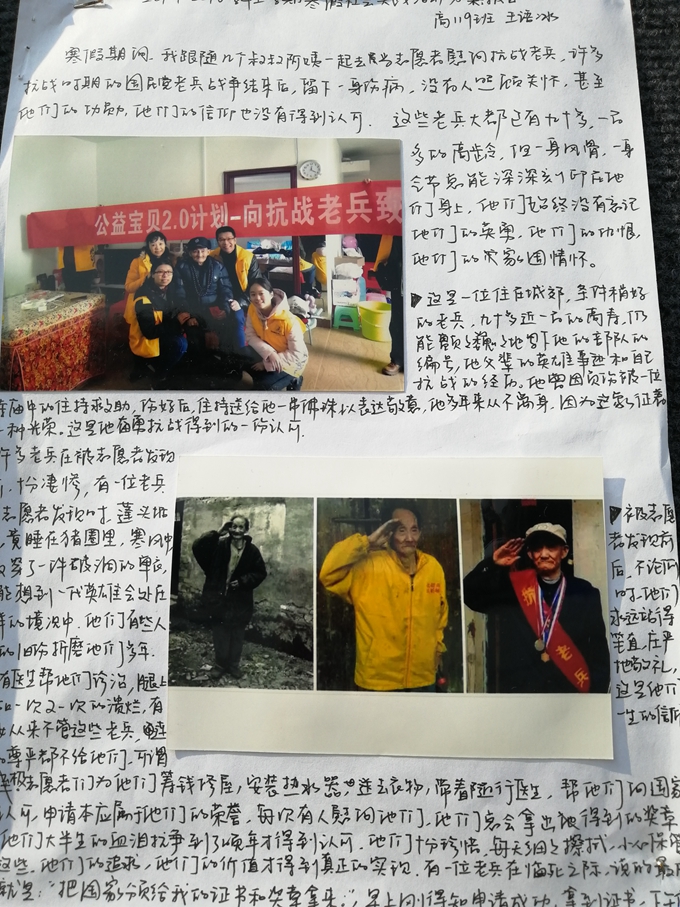 高119班 王语冰
寒假期间,我跟随几个叔叔阿姨一起去当志愿者慰问抗战老兵,许多
抗战时期的国民党老兵战争结束后,留下一身伤病,没有人照顾关怀,甚至
他们的功勋,他们的信仰也没有得到认可. 这些老兵大都已有九十多,一百
多的高龄,但一身风骨,一身
气节总能深深刻印在他
们身上,他们始终没有忘记
他们的英勇,他们的仇恨,
他们的家国情怀。
公益宝贝2.0计划-向抗战老兵致
▶这是一位住在城郊,条件稍好
的老兵,九十多近一百的高寿,仍
能颤颤巍巍地写下他的部队的
编号,他父辈的英雄事迹和自己
抗战的经历,他曾因负伤被一位
寺庙中的住持救助,伤好后,住持送给他一串佛珠以表达敬意,他多年来从不离身,因为这象征着
一种光荣。这是他奋勇抗战得到的一份认可.
许多老兵在被志愿者发现
前,十分凄惨,有一位老兵
志愿者发现时,蓬头垢
,竟睡在猪圈里,寒风中
穿了一件破洞的单衣,
能想到一代英雄会处在
样的境况中.他们有些人
的旧伤折磨他们多年.
有医生帮他们诊治,腿上
一次又一次的溃烂,有
从来不管这些老兵,连
的尊严都不给他们.可谓
抗战老兵
▶被志愿
者发现前
后,不论何
时,他们
永远站得
笔直,庄严
地敬礼,
这是他们
一生的信仰
志愿者们为他们筹钱修屋,安装热水器,送去衣物,带着随行医生,帮他们向国家
认可,申请本应属于他们的荣誉,每次有人慰问他们,他们总会拿出他得到的奖章
他们大半生的血泪抗争到了暮年才得到认可.他们十分珍惜,每天细细擦拭,小心保管
这些.他们的追求,他们的价值才得到真正的实现.有一位老兵在临死之际,说的最后
就是:"把国家颁给我的证书和奖章拿来."早上刚得知申请成功,拿到证书,下午